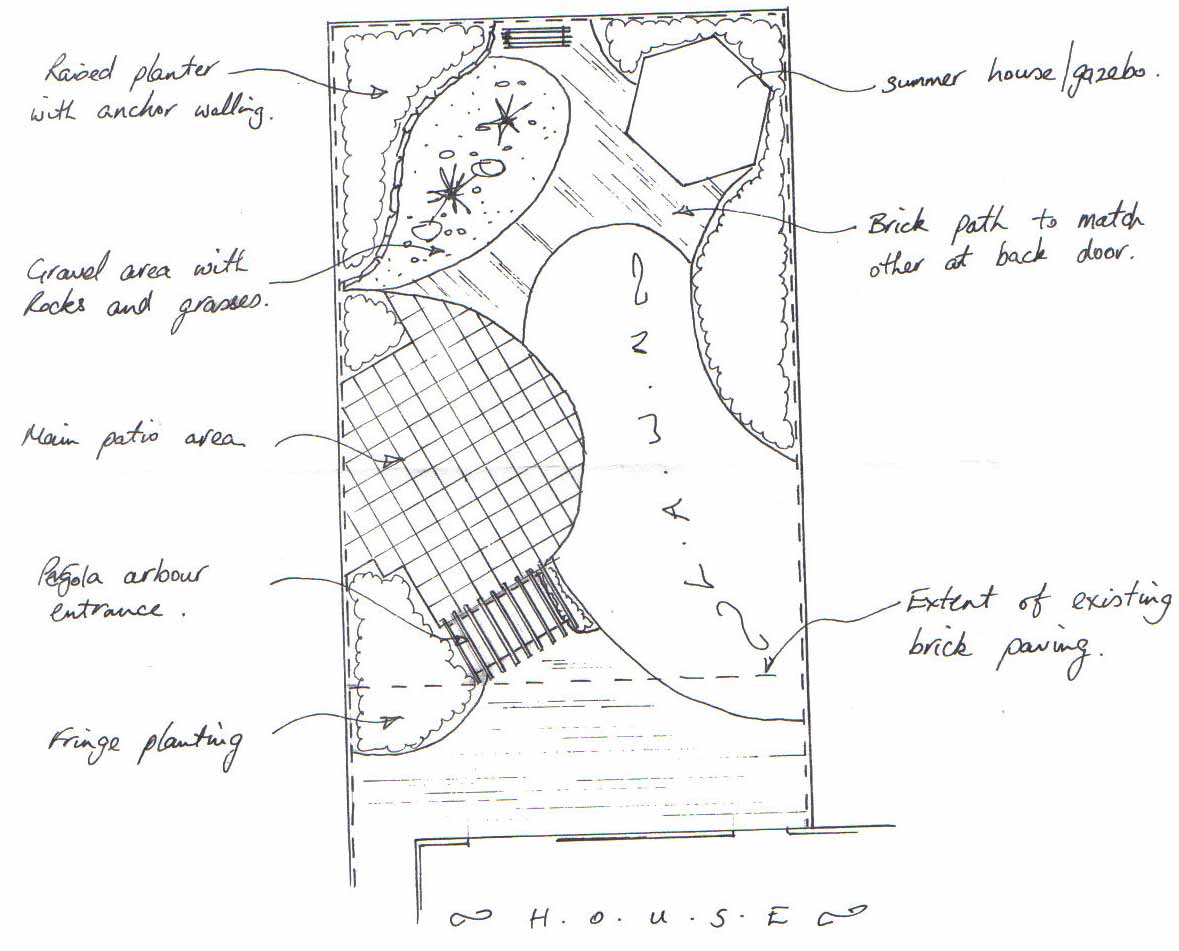 Raised planter
with anchor walling.
summer house/gazebo.
Brick path to match
other at back door.
Gravel area with
Rocks and grasses.
Main patio area
L.A.W.N
Pergola arbour
entrance.
Extent of existing
brick paving.
Fringe planting
H.O.U.S.E